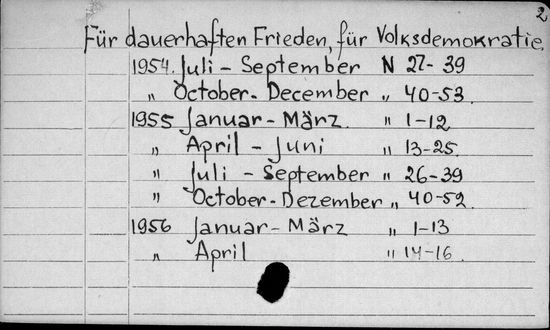 2
Für dauerhaften Frieden, für Volksdemokratie.
1954. Juli - September N 27-39
" October - December " 40-53.
1955 Januar - März. " 1-12
" April - Juni " 13-25.
" Juli - September " 26-39
" October - Dezember " 40-52.
1956 Januar - März " 1-13
" April " 14-16.